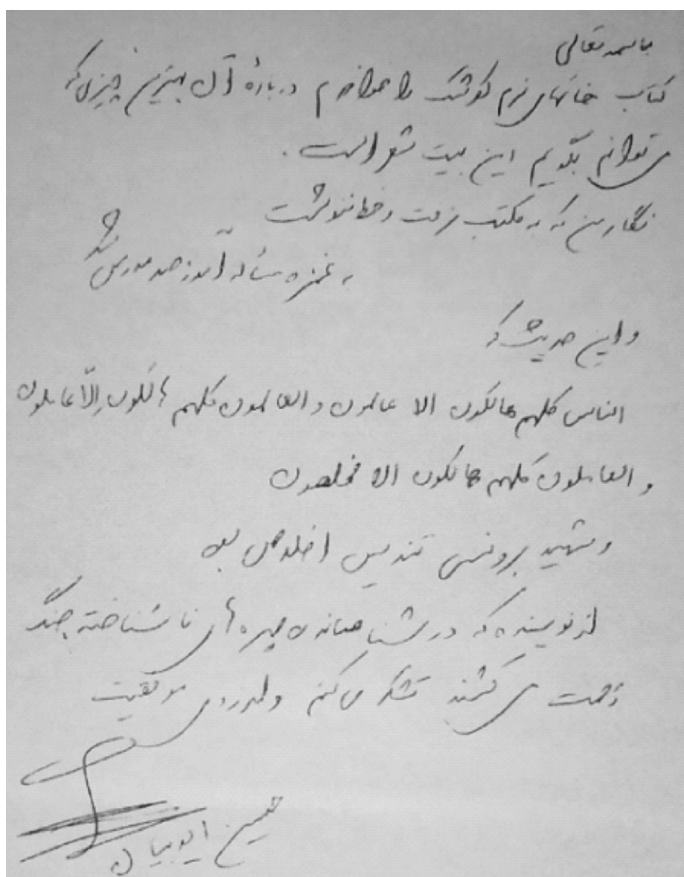 باسمه تعالی
کتاب خاکهای نرم کوشک را خواندم درباره آن بهترین چیزی که
می توانم بگویم این بیت شعر است .
نگار من که به مکتب نرفت و خط ننوشت
به غمزه مسئله آموز صد مدرس شد
و این حدیث که
الناس کلهم هالکون الا عالمون و العالمون کلهم هالکون الّا عاملون
و العاملون کلهم هالکون الا مخلصون
و شهید برونسی تندیس اخلاص بود
از نویسنده که در شناساندن چهره های ناشناخته جنگ
زحمت می کشند تشکر می کنم و امیدوارم موفقیت
حسین ایوبیان